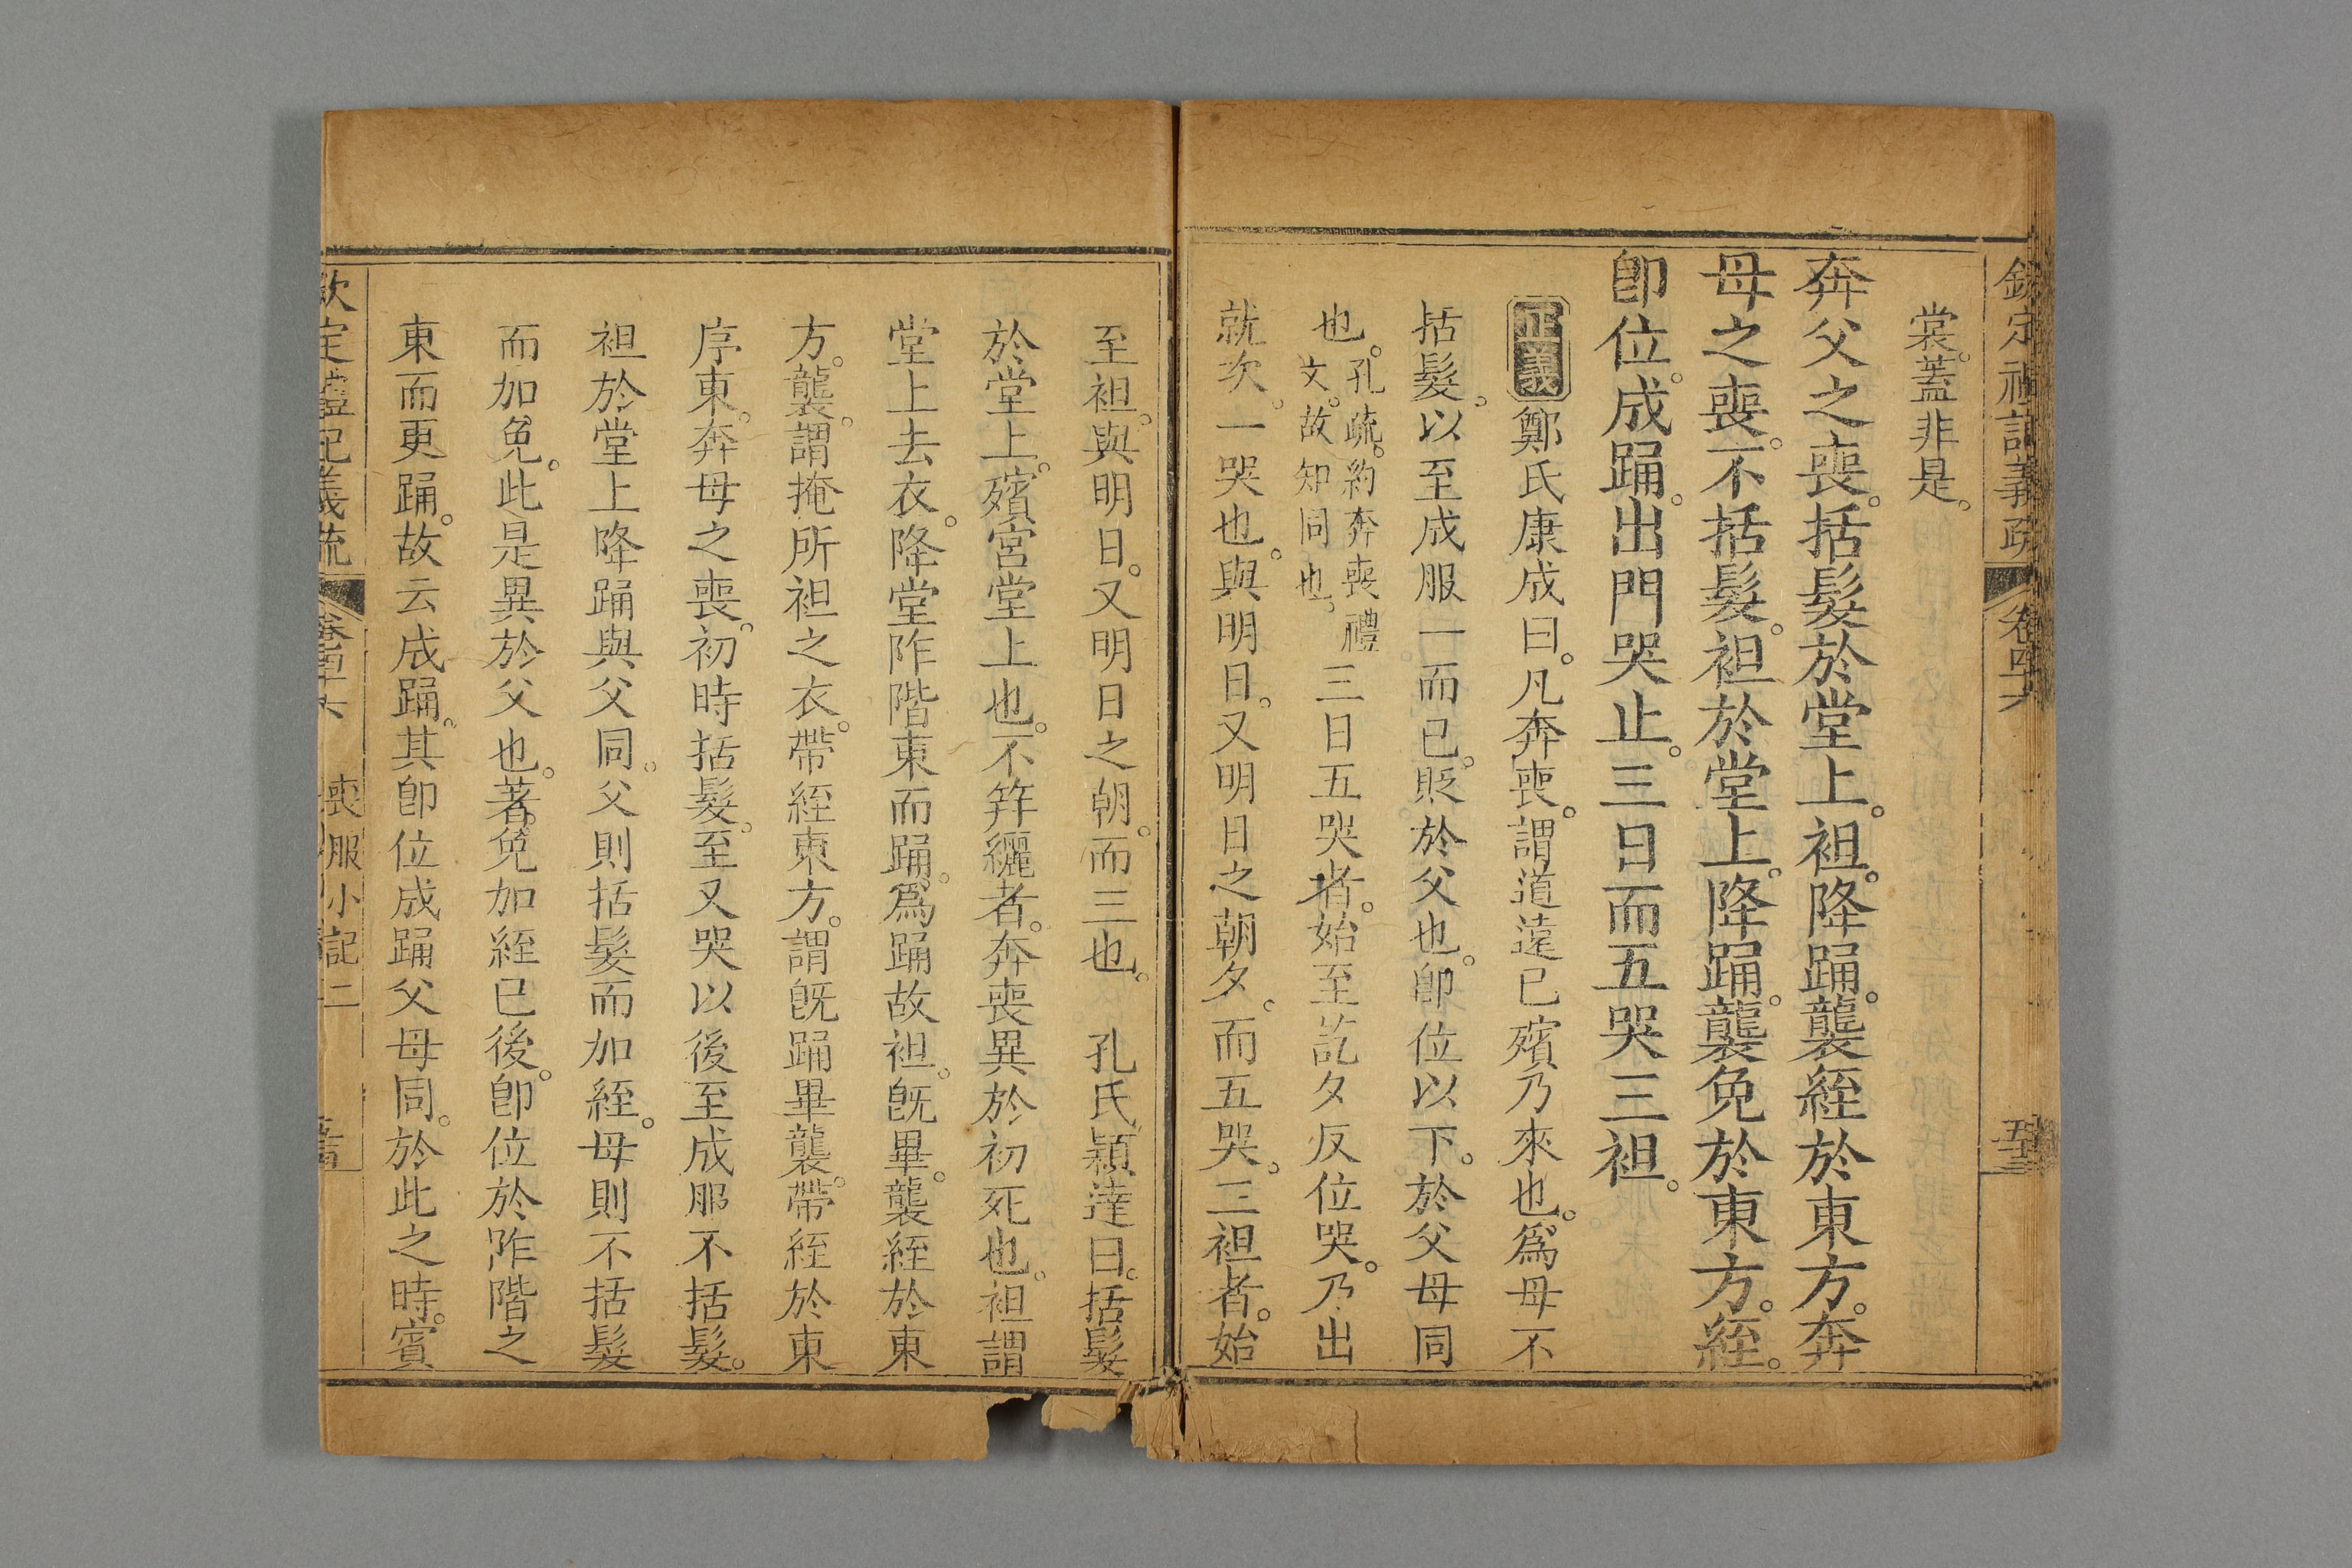 欽定禮記義疏 卷四十六
裳。蓋非是。
奔父之喪。括髮於堂上。袒。降踊。襲絰於東方。奔
母之喪。不括髮。袒於堂上。降踊。襲免於東方。絰。
卽位。成踊。出門哭止。三日而五哭三袒。
正義 鄭氏康成曰。凡奔喪。謂道遠已殯乃來也。爲母不
括髮。以至成服一而已。貶於父也。卽位以下。於父母同
也。孔疏。約奔喪禮文。故知同也。三日五哭者。始至訖夕反位哭。乃出
就次。一哭也。與明日。又明日之朝夕。而五哭。三袒者。始
至袒。與明日。又明日之朝。而三也。 孔氏穎達曰。括髮
於堂上。殯宮堂上也。不笄纚者。奔喪異於初死也。袒謂
堂上去衣。降堂阼階東而踊。爲踊故袒。旣畢。襲絰於東
方。襲。謂掩所袒之衣。帶絰東方。謂旣踊畢襲。帶絰於東
序東。奔母之喪。初時括髮。至又哭以後至成服不括髮。
袒於堂上降踊與父同。父則括髮而加絰。母則不括髮
而加免。此是異於父也。著免加絰已後。卽位於阼階之
東而更踊。故云成踊。其卽位成踊父母同。於此之時。賓
欽定禮記義疏 卷四十六 喪服小記二